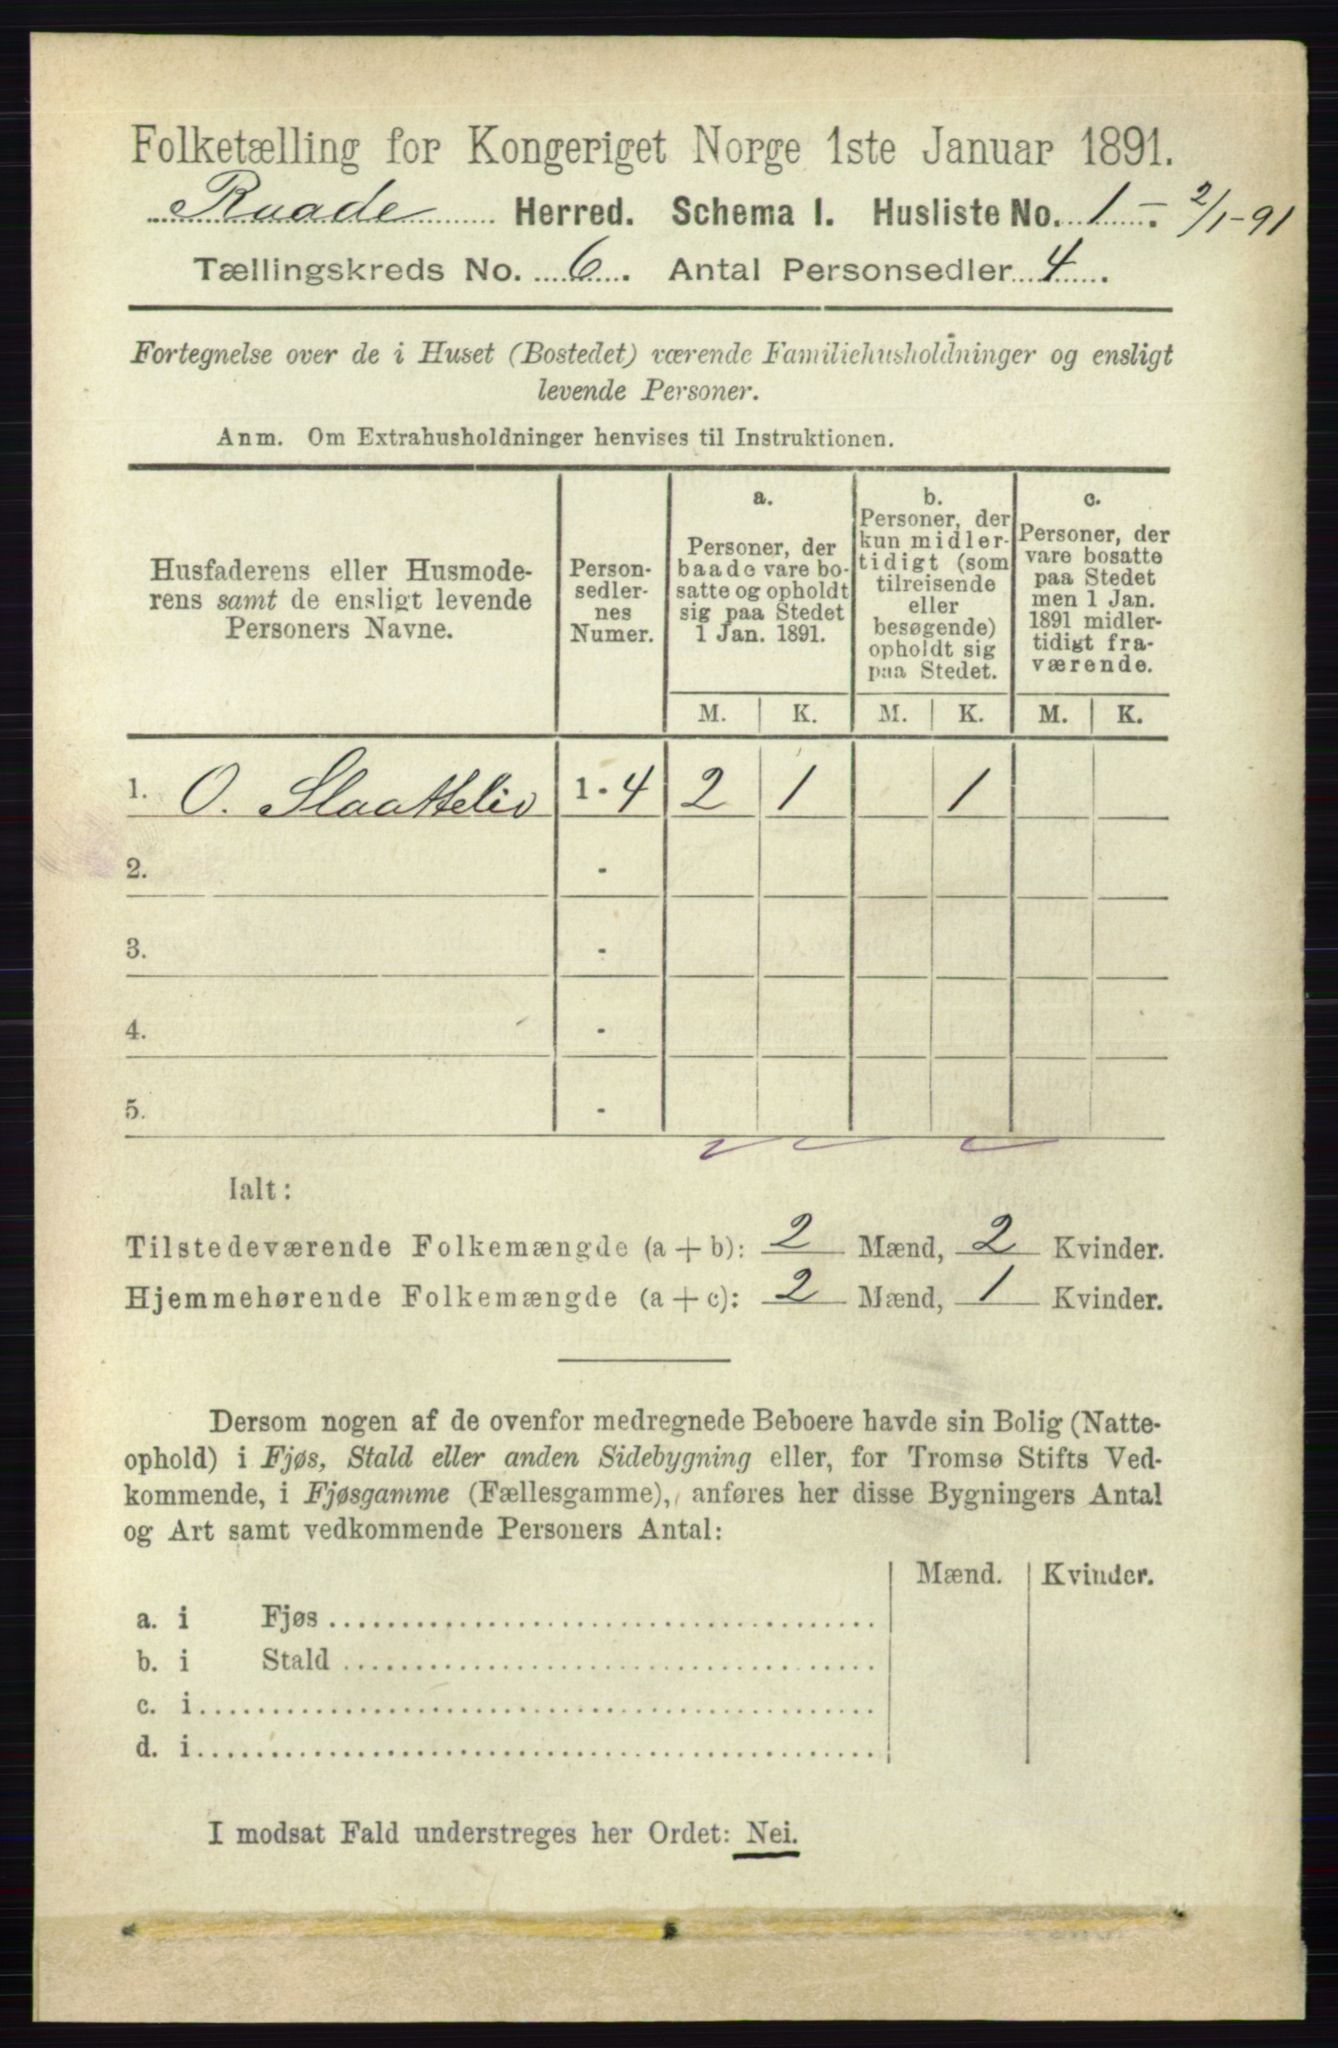 Folketælling for Kongeriget Norge 1ste Januar 1891.
Raade Herred. Schema I. Husliste No. 1 - 2/1-91
Tællingskreds No. 6. Antal Personsedler 4.
Fortegnelse over de i Huset (Bostedet) værende Familiehusholdninger og ensligt
levende Personer.
Anm. Om Extrahusholdninger henvises til Instruktionen.
Husfaderens eller Husmode-
rens samt de ensligt levende
Personers Navne.
Person-
sedler-
nes
Numer.
a.
Personer, der
baade vare bo-
satte og opholdt
sig paa Stedet
1 Jan. 1891.
b.
Personer, der
kun midler-
tidigt (som
tilreisende
eller
besøgende)
opholdt sig
paa Stedet.
c.
Personer, der
vare bosatte
paa Stedet
men 1 Jan.
1891 midler-
tidigt fra-
værende.
M. K. M. K. M. K.
1. O. Slaattelid 1-4 2 1 1
2. -
3. -
4. -
5. -
Ialt:
Tilstedeværende Folkemængde (a + b): 2 Mænd, 2 Kvinder.
Hjemmehørende Folkemængde (a + c): 2 Mænd, 1 Kvinder.
Dersom nogen af de ovenfor medregnede Beboere havde sin Bolig (Natte-
ophold) i Fjøs, Stald eller anden Sidebygning eller, for Tromsø Stifts Ved-
kommende, i Fjøsgamme (Fællesgamme), anføres her disse Bygningers Antal
og Art samt vedkommende Personers Antal:
Mænd. Kvinder.
a. i Fjøs
b. i Stald
c. i
d. i
I modsat Fald understreges her Ordet: Nei.